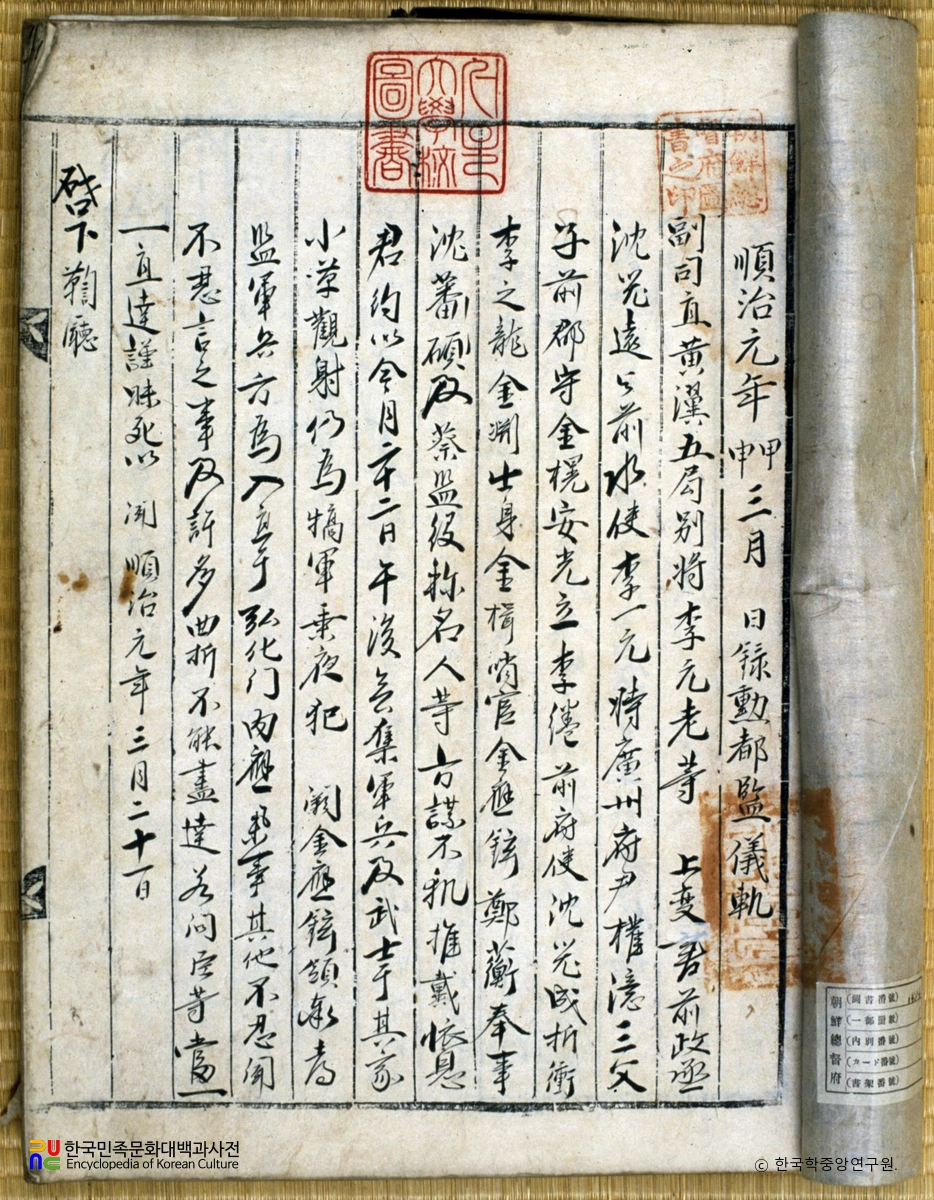 順治元年甲申三月 日錄勳都監儀軌
副司直黃瀷五局別將李元老等 上變書前政丞
沈器遠與前水使李一元時廣州府尹權澺三父
子前郡守金榥安光立李綣前府使沈器成折衝
李之龍金渊士身金楫哨官金應鋳鄭蘅奉事
沈蕃碩及蔡監役称名人等方謀不軌推戴懷恩
君約以今月二十二日午後会集軍兵及武士于其家
小萆觀射仍為犒軍乘夜犯 闕金應鋳領率為
監軍兵方為入直于弘化门内應舉事其他不忍聞
不忍言之事及許多曲折不能盡達若问臣等當
一直達謹昧死以 闻順治元年三月二十一日
啓下鞫廳
京城大學校圖書
朝鮮總督府圖書之印
朝鮮總督府
(圖書番號)
(一部冊數)
(内別番號)
(カード番號)
(書架番號)
한국민족문화대백과사전
Encyclopedia of Korean Culture
ⓒ 한국학중앙연구원.